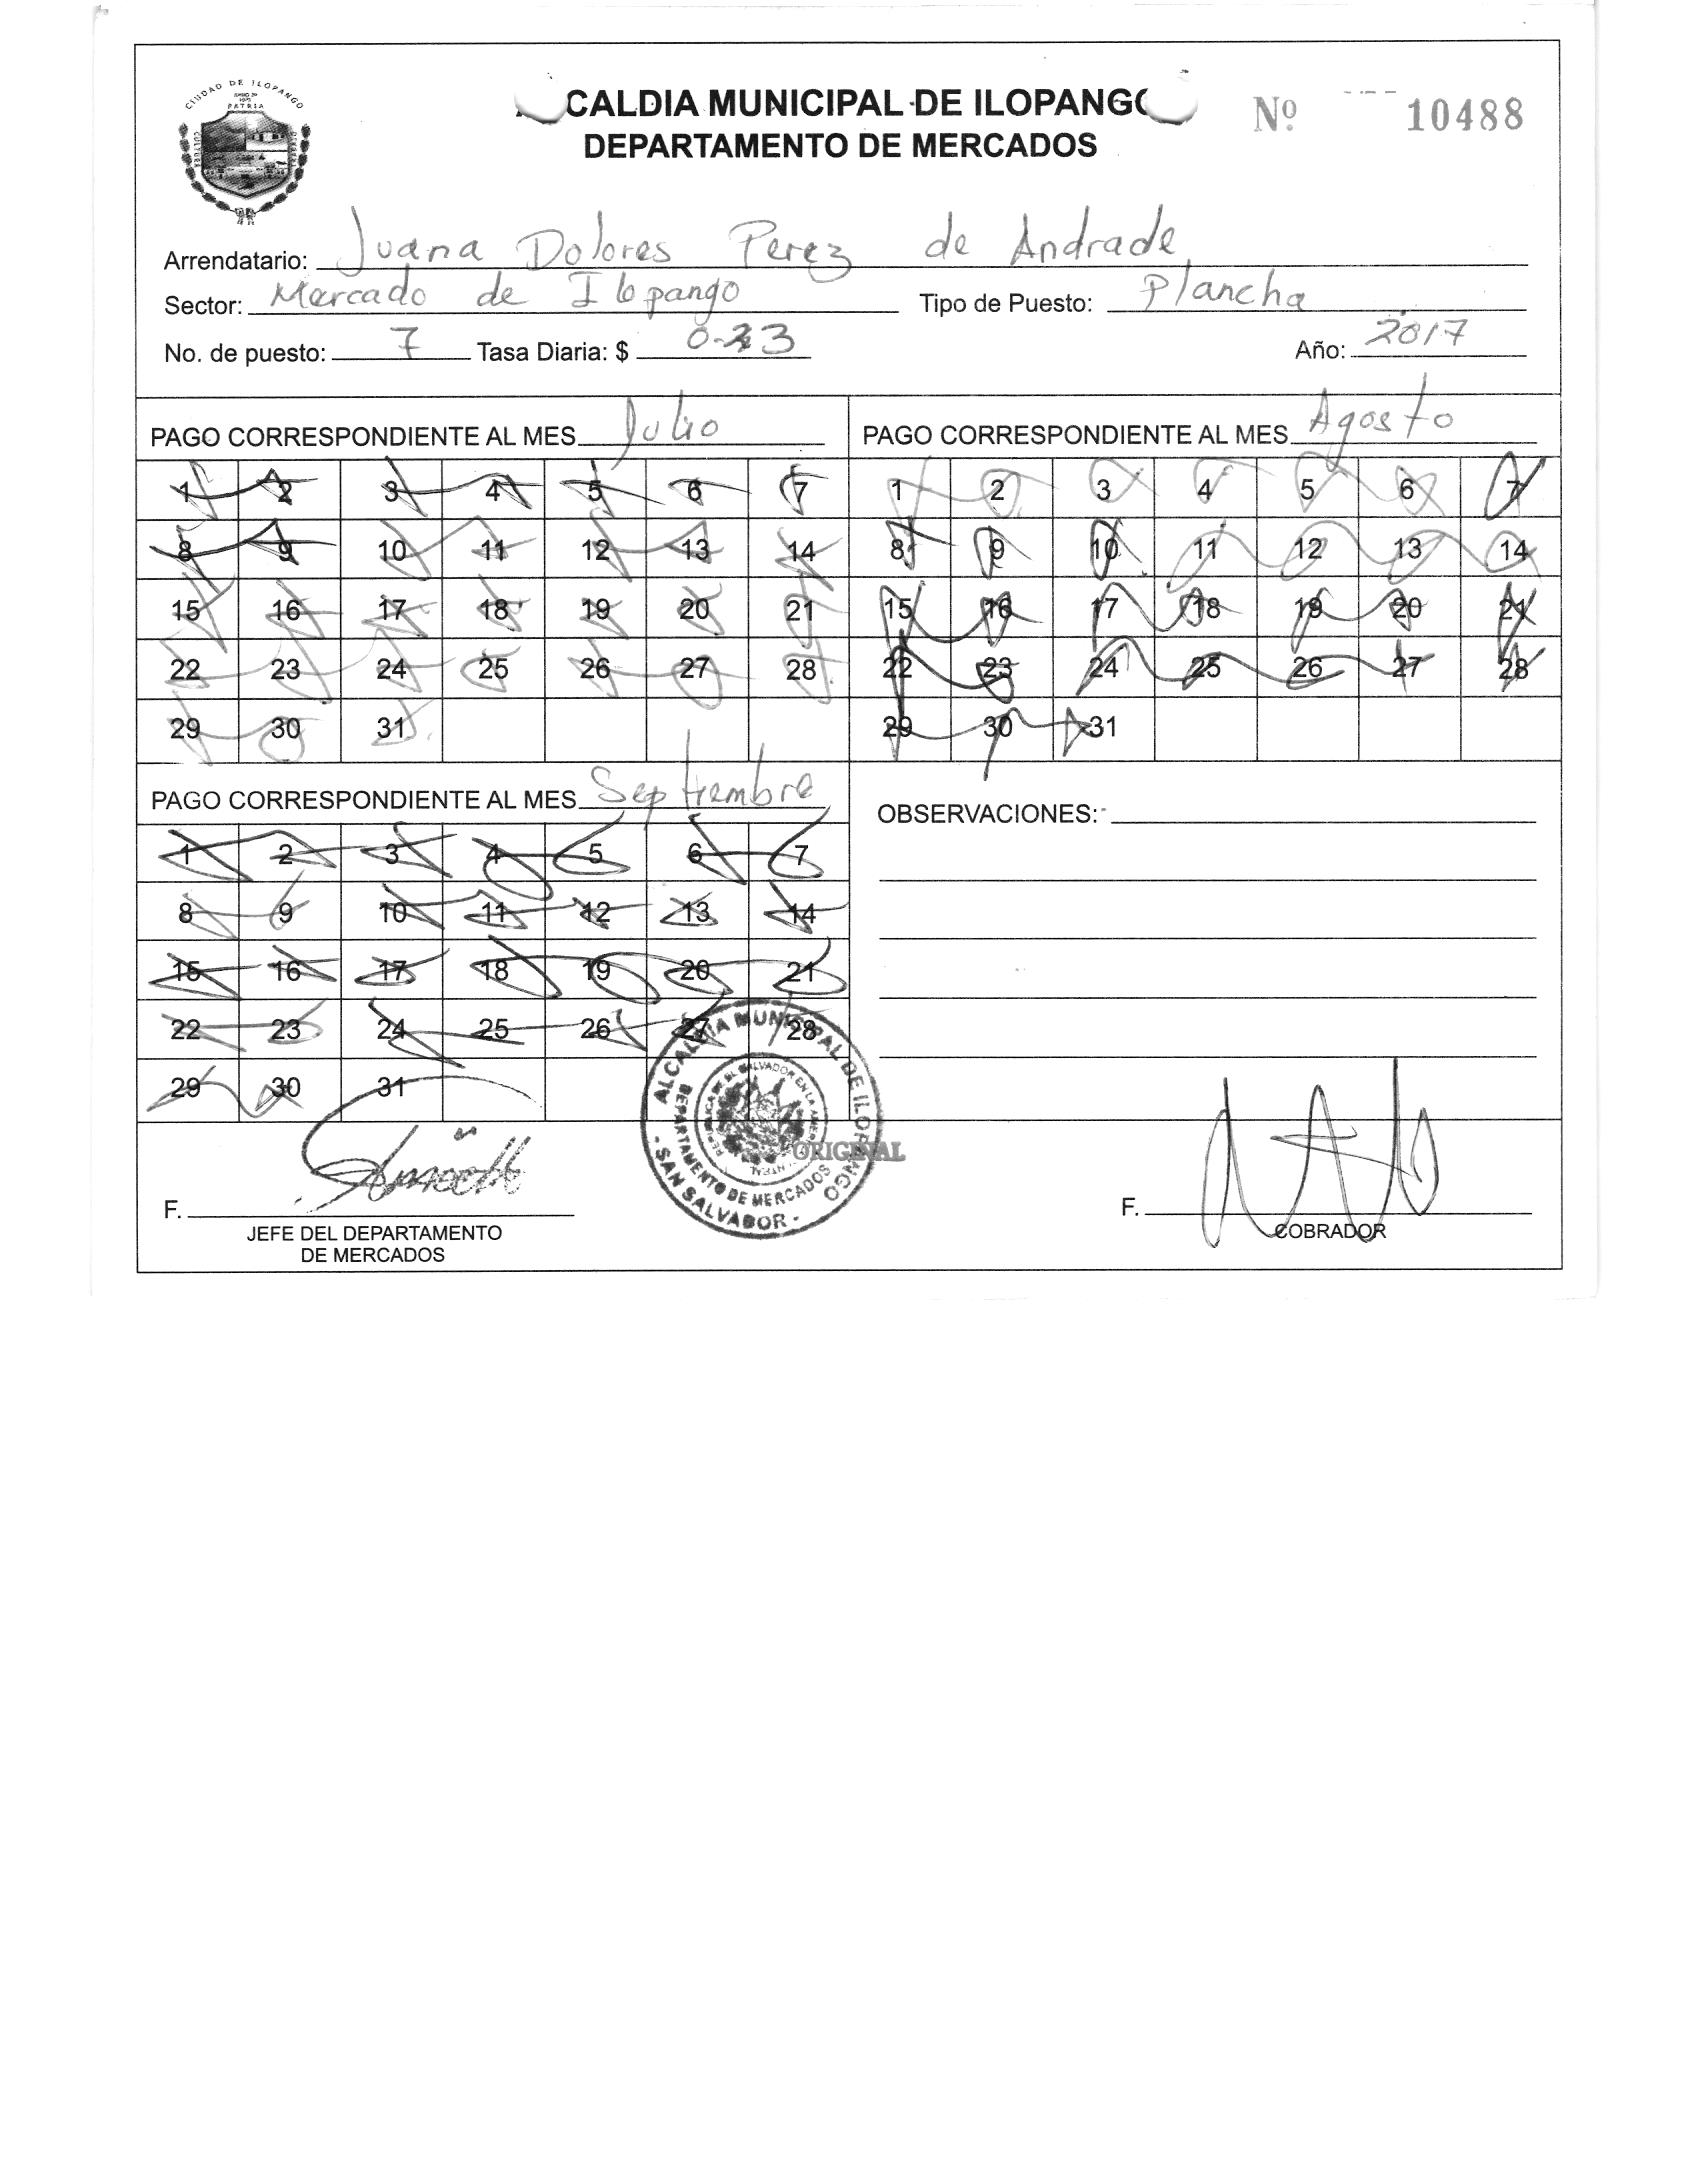 CIUDAD DE ILOPANGO
PATRIA
CULTURA
CALDIA MUNICIPAL DE ILOPANGO
DEPARTAMENTO DE MERCADOS
Nº 10488
Arrendatario: Juana Dolores Perez de Andrade
Sector: Mercado de Ilopango Tipo de Puesto: Plancha
No. de puesto: 7 Tasa Diaria: $ Año: 2017
PAGO CORRESPONDIENTE AL MES Julio
1 2 3 4 5 6 7
8 9 10 11 12 13 14
15 16 17 18 19 20 21
22 23 24 25 26 27 28
29 30 31
PAGO CORRESPONDIENTE AL MES Agosto
1 2 3 4 5 6 7
8 9 10 11 12 13 14
15 16 17 18 19 20 21
22 23 24 25 26 27 28
29 30 31
PAGO CORRESPONDIENTE AL MES Septiembre
1 2 3 4 5 6 7
8 9 10 11 12 13 14
15 16 17 18 19 20 21
22 23 24 25 26 27 28
29 30 31
OBSERVACIONES:
ALCALDIA MUNICIPAL DE ILOPANGO
DEPARTAMENTO DE MERCADOS
- SAN SALVADOR -
ORIGINAL
F.
JEFE DEL DEPARTAMENTO
DE MERCADOS
F.
COBRADOR